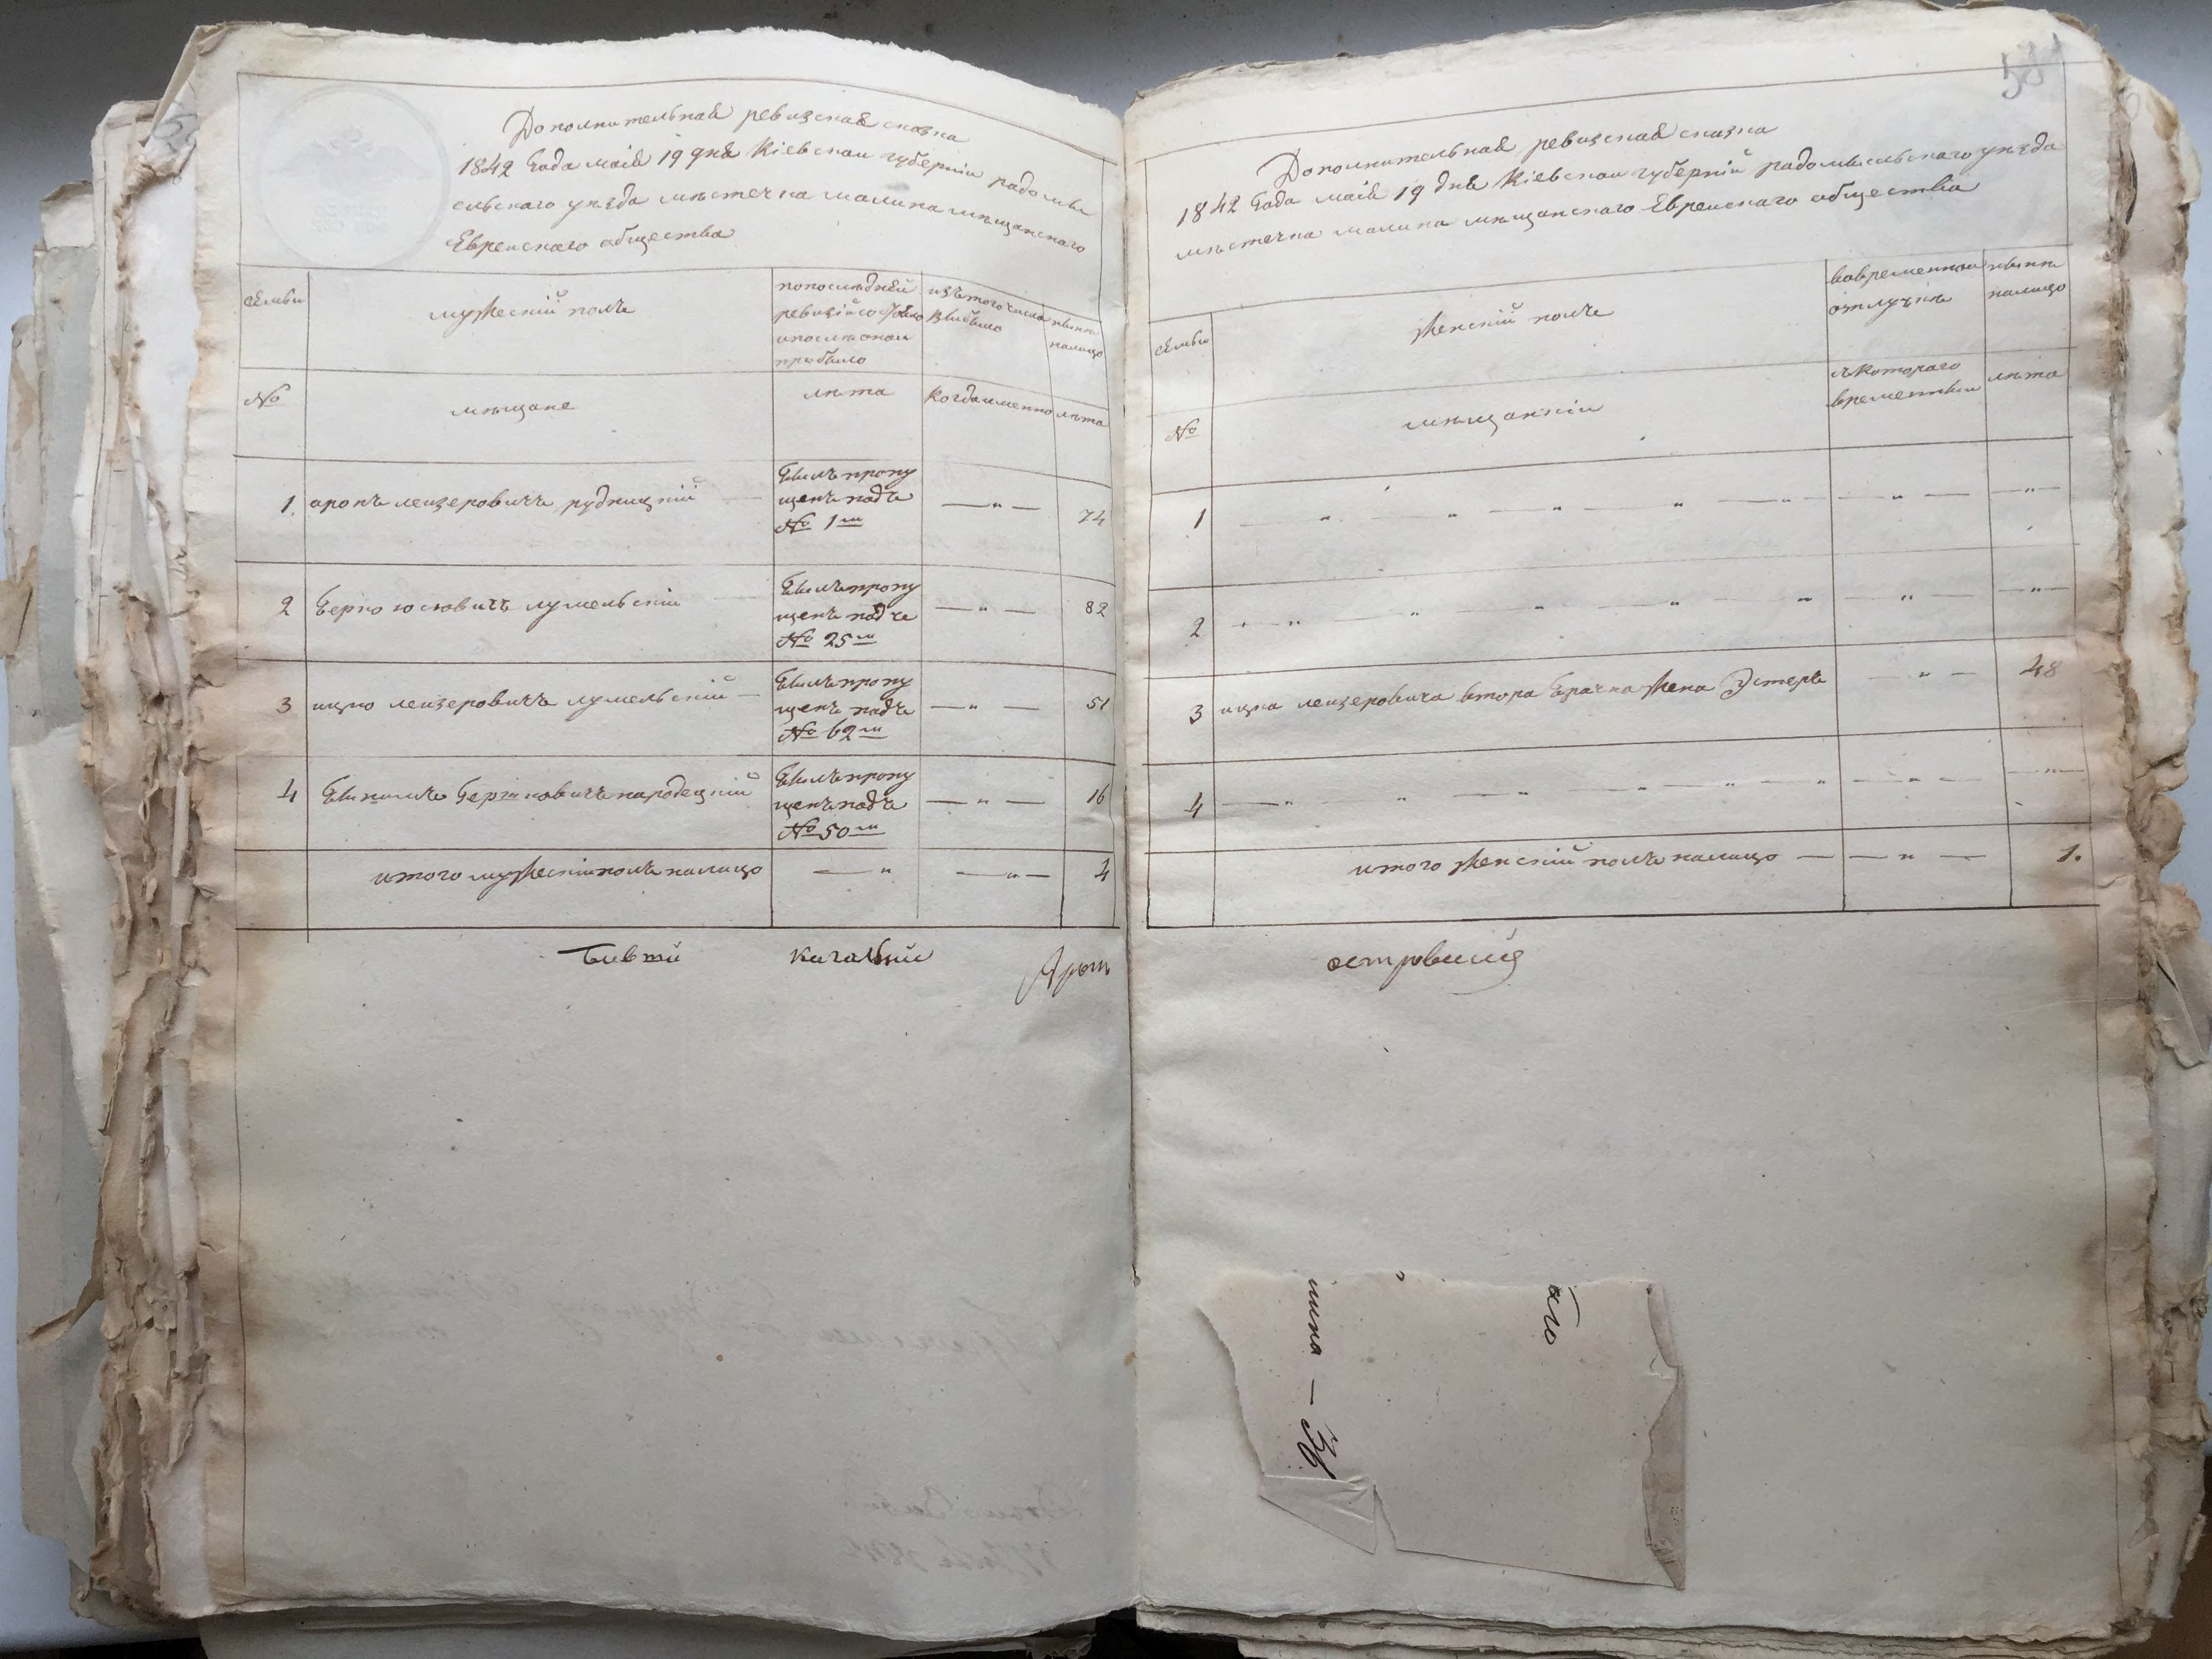 Дополнительная ревизская сказка
1842 Года маiя 19 дня Кiевскои губернiи радомы
сльскаго уѣзда мѣстечка малина мѣщанскаго
Евреискаго общества
семьи
мужескiй полъ
попослѣдней
ревизiи состояло
ипослѣ онои
прибыло
изътого числа
выбыло
нынѣ
налицо
№
мѣщане
лѣта
когдаименно
лѣта
1. аронъ леизеровичъ рудницкiй
былъпропу
щенъ подъ
№ 1м
— „ —
74
2 Берко юсювичъ
былъпропу
щенъ подъ
№ 25м
— „ —
82
3 ицко леизеровичъ
былъпропу
щенъ подъ
№ 62м
— „ —
51
4 Берковичъ народецкiй
былъпропу
щенъ подъ
№ 50м
— „ —
16
итого мужескiйполъ налицо — „ — „ — 4
Бившiй кагальнiй
538
Дополнительная ревизская сказка
1842 Года маiя 19 дня Кiевскои губернiй радомысльскаго уѣзда
мѣстечка малина мѣщанскаго Евреискаго общества
семьи
женскiй полъ
вовременнои
отлучкѣ
нынѣ
налицо
№
мѣщанкiи
съкотораго
времени
лѣта
1 — „ — „ — „ — „ — „ — „ —
2 — „ — „ — „ — „ — „ — „ —
3 ицка леизеровича втора брачна жена Эстеръ — „ — 48
4 — „ — „ — „ — „ — „ — „ —
итого женскiй полъ налицо — — „ — 1.
аго